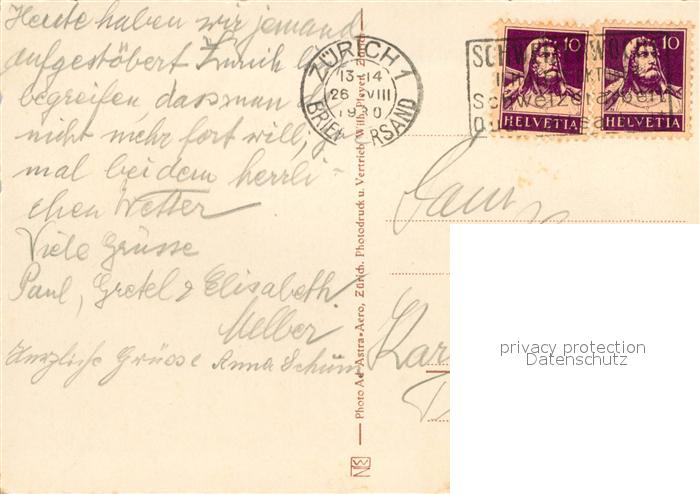 Heute haben wir jemand
aufgestöbert Zürich
begreifen, dass man
nicht mehr fort will,
mal bei dem herrli-
chen Wetter
Viele Grüsse
Paul, Gretel & Elisabeth
Melber
Herzliche Grüsse Anna Schüm
ZÜRICH 1
13-14
26 VIII
1930
BRIEFVERSAND
10
HELVETIA
10
HELVETIA
Photo Ad Astra-Aero, Zürich. Photodruck u. Vertrieb Wilh. Pleyer, Zürich
Fam
privacy protection
Datenschutz